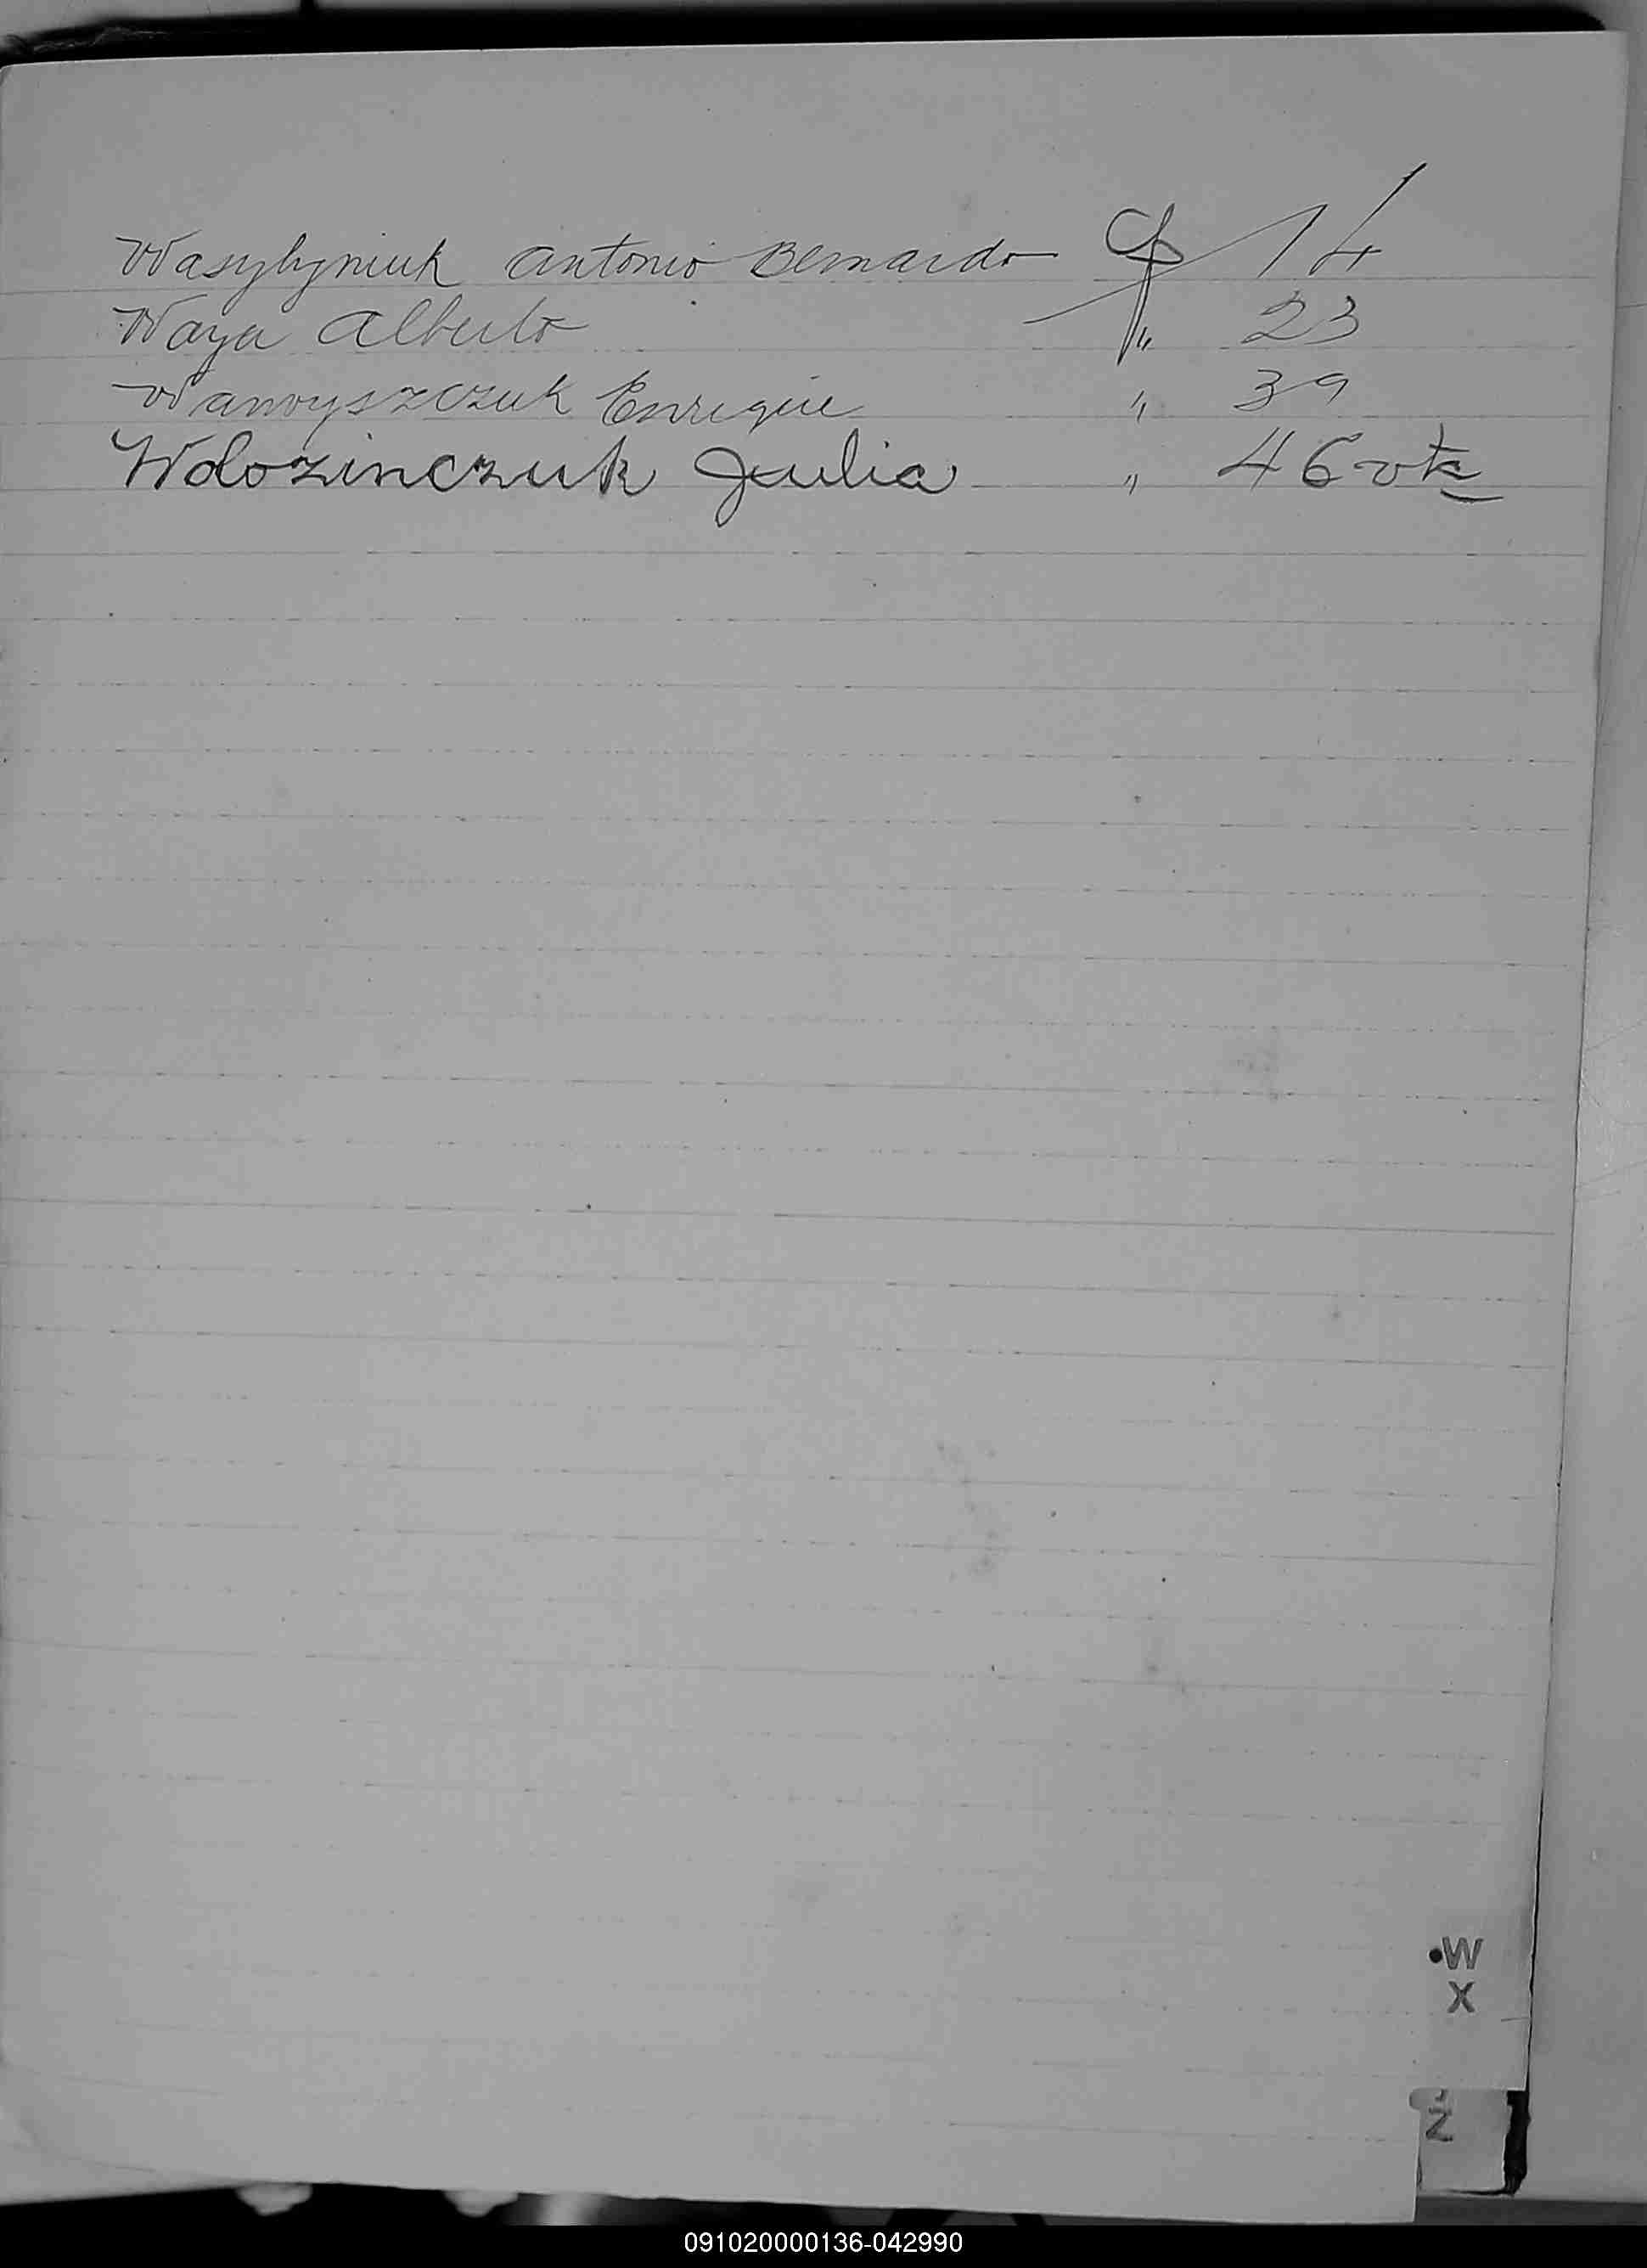 Wasylyniuk Antonio Bernardo 14
Waya Alberto " 23
Wawryszczuk Enrique " 39
Wolozinczuk Julia " 46 vta
W
X
Z
091020000136-042990